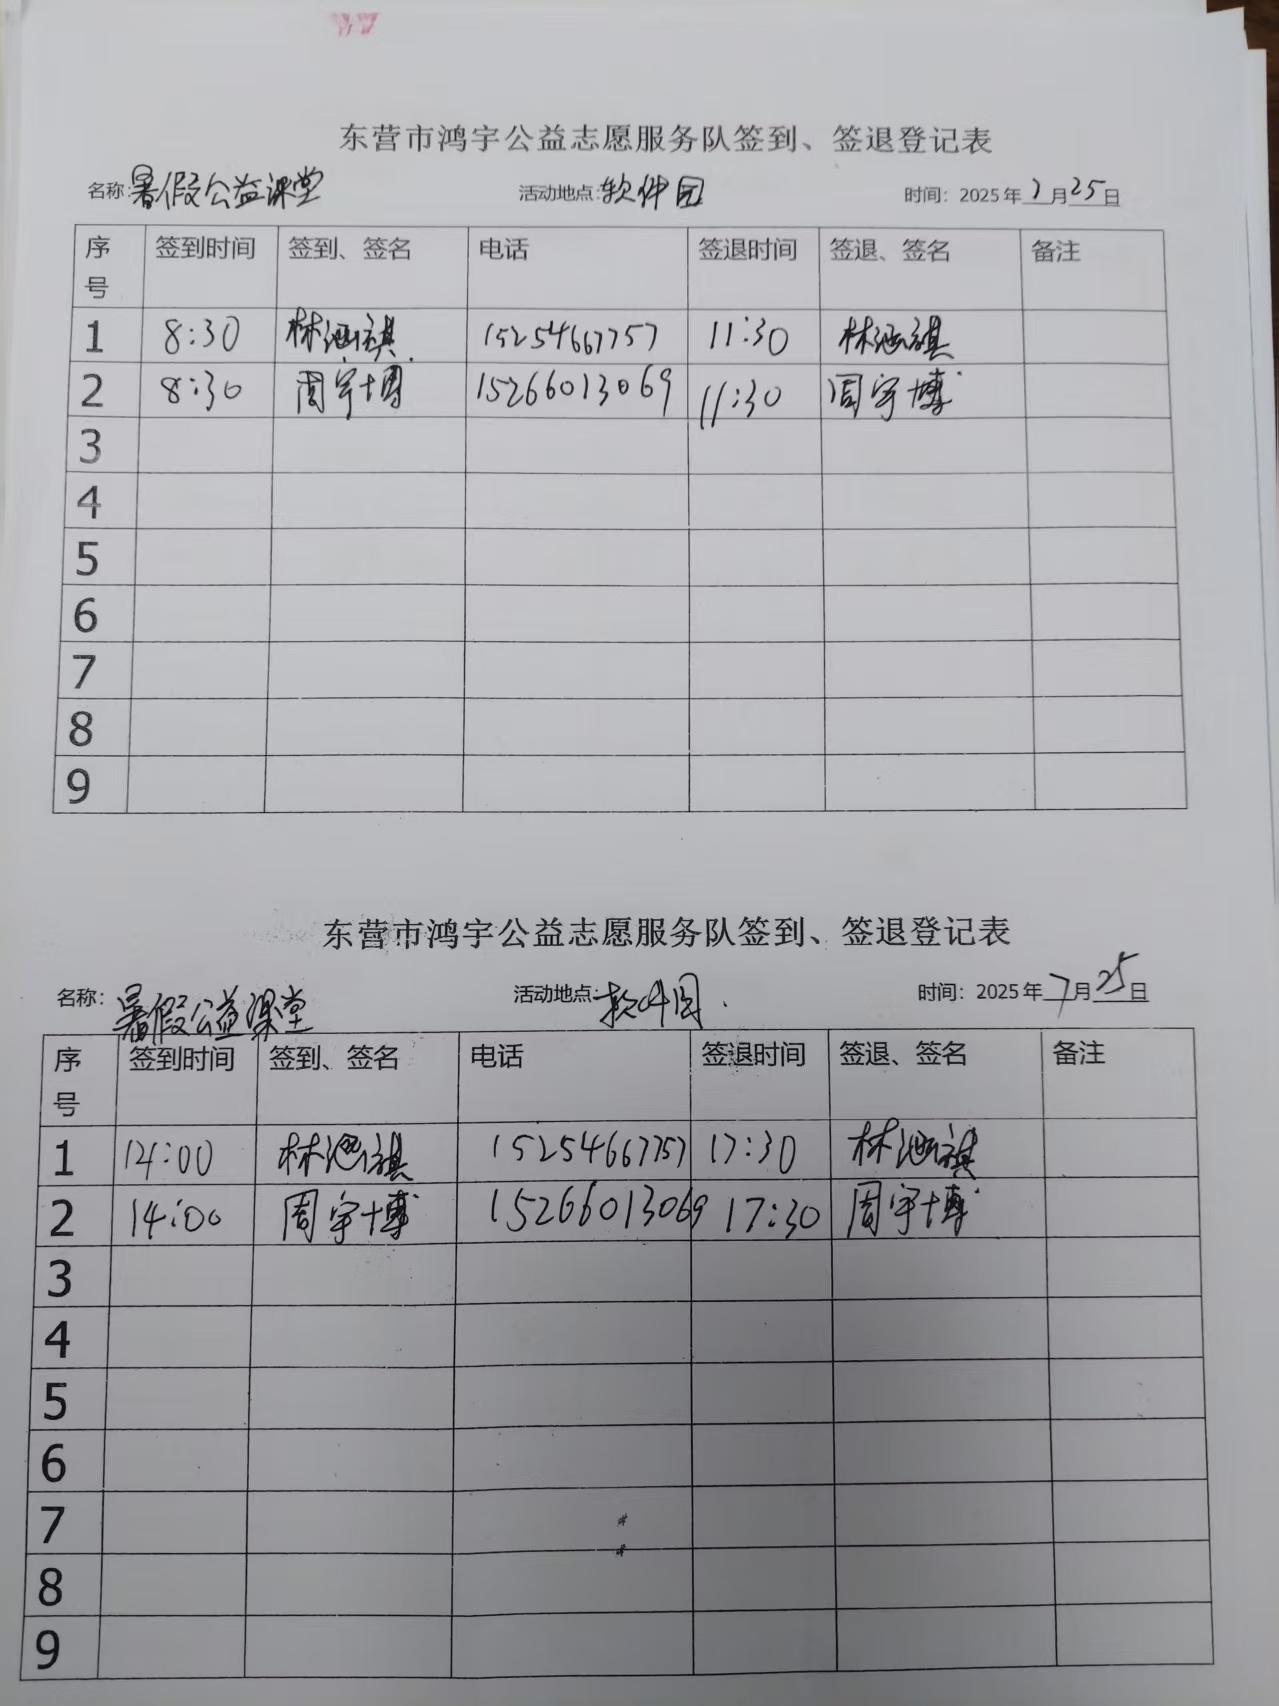 东营市鸿宇公益志愿服务队签到、签退登记表
名称:暑假公益课堂 活动地点:软件园 时间: 2025年7月25日
序号 签到时间 签到、签名 电话 签退时间 签退、签名 备注
1 8:30 林祺 15254667757 11:30 林祺
2 8:30 周宇博 15266013069 11:30 周宇博
3
4
5
6
7
8
9
东营市鸿宇公益志愿服务队签到、签退登记表
名称: 暑假公益课堂 活动地点:软件园. 时间: 2025年7月25日
序号 签到时间 签到、签名 电话 签退时间 签退、签名 备注
1 14:00 林祺 15254667757 17:30 林祺
2 14:00 周宇博 15266013069 17:30 周宇博
3
4
5
6
7
8
9